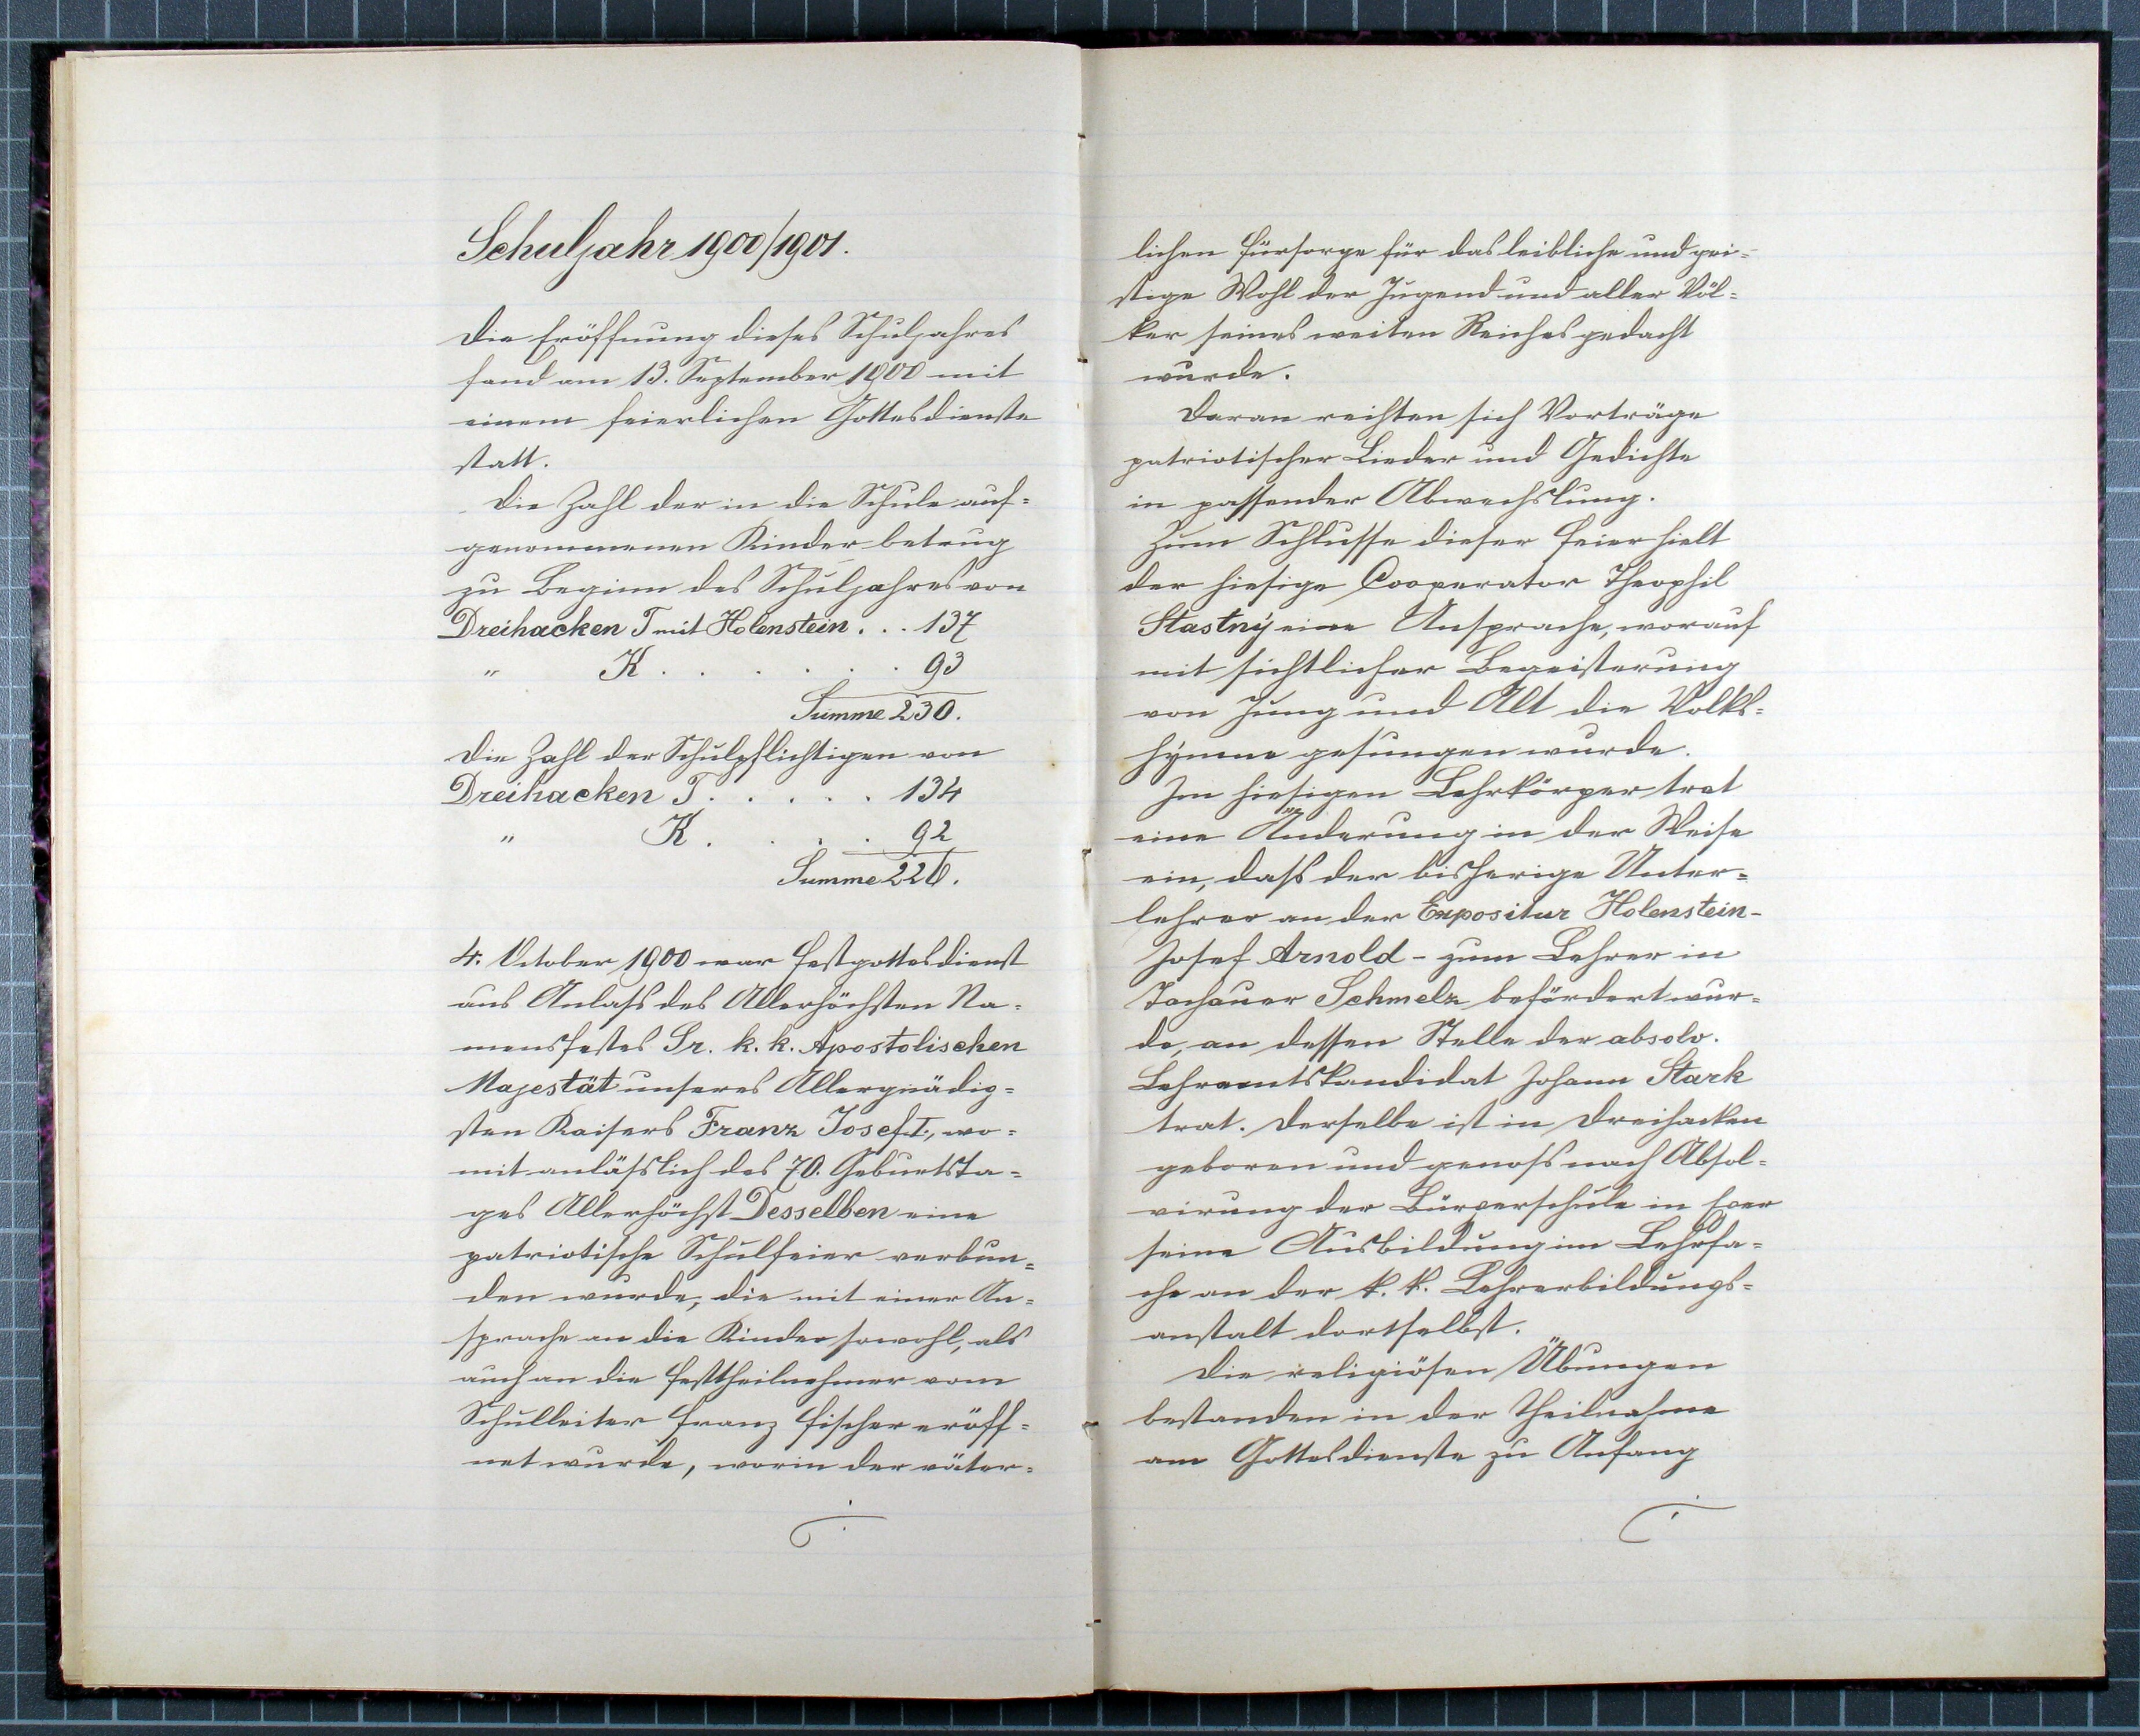 Schuljahr 1900/1901.
Die Eröffnung dieses Schuljahres
fand am 13. September 1900 mit
einem feierlichen Gottesdienste
statt.
Die Zahl der in die Schule auf=
genommenen Kinder betrug
zu Beginn des Schuljahres von
Dreihacken T mit Holenstein . . . 137
" K . . . . . . 93
Summe 230.
Die Zahl der Schulpflichtigen von
Dreihacken T . . . . . 134
" K . . . . 92
Summe 226.
4. October 1900 war Festgottesdienst
aus Anlaß des Allerhöchsten Na=
mensfestes Sr. k. k. Apostolischen
Majestät unseres Allergnädig=
sten Kaisers Franz Josef I., wo=
mit anläßlich des 70. Geburtsta=
ges Allerhöchst Desselben eine
patriotische Schulfeier verbun=
den wurde, die mit einer An=
sprache an die Kinder sowohl, als
auch an die Festtheilnehmer vom
Schulleiter Franz Fischer eröff=
net wurde, worin der väter=
lichen Fürsorge für das leibliche und gei=
stige Wohl der Jugend und aller Völ=
ker seines weiten Reiches gedacht
wurde.
Daran reihten sich Vorträge
patriotischer Lieder und Gedichte
in passender Abwechslung.
Zum Schlusse dieser Feier hielt
der hiesige Cooperator Theophil
Stastný eine Ansprache, worauf
mit sichtlicher Begeisterung
von Jung und Alt die Volks=
hymne gesungen wurde.
Im hiesigen Lehrkörper trat
eine Änderung in der Weise
ein, daß der bisherige Unter=
lehrer an der Expositur Holenstein -
Josef Arnold - zum Lehrer in
Tachauer Schmelz befördert wur=
de, an dessen Stelle der absolv.
Lehramtskandidat Johann Stark
trat. Derselbe ist in Dreihacken
geboren und genoß nach Absol=
virung der Bürgerschule in Eger
seine Ausbildung im Lehrfa=
che an der k. k. Lehrerbildungs=
anstalt dortselbst.
Die religiösen Übungen
bestanden in der Theilnahme
am Gottesdienste zu Anfang